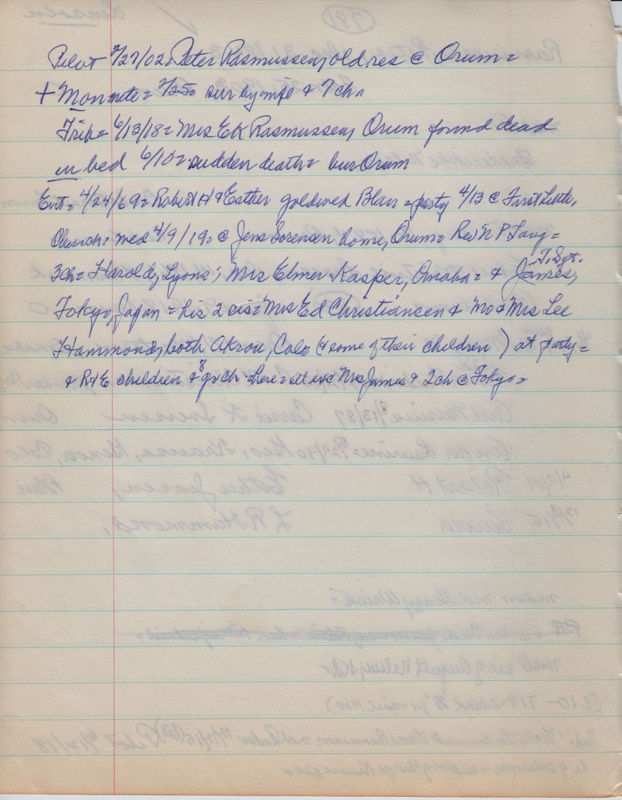 Pilot 2/27/02 = Peter Rasmussen, old res @ Orum =
+ Mon nite = 2/25 = sur by wife & 7 ch.
Trib = 6/13/18 = Mrs E K Rasmussen, Orum found dead
in bed 6/10 = sudden death = bur Orum
Ent = 4/24/69 = Robert H & Esther golden wed Blair = party 4/13 @ First Luth.
Church: wed 4/9/19 = @ Jens Sorensen home, Orum = Rev N P Lang =
3 ch = Harold, Lyons; Mrs Elmer Kasper, Omaha = & T. Sgt. James,
Tokyo, Japan = his 2 sis = Mrs Ed Christiansen & Mr & Mrs Lee
Hammond, both Akron, Colo (& some of their children) at party =
& R & E children & 8 gr ch there = all exc Mrs James & 2 ch @ Tokyo =